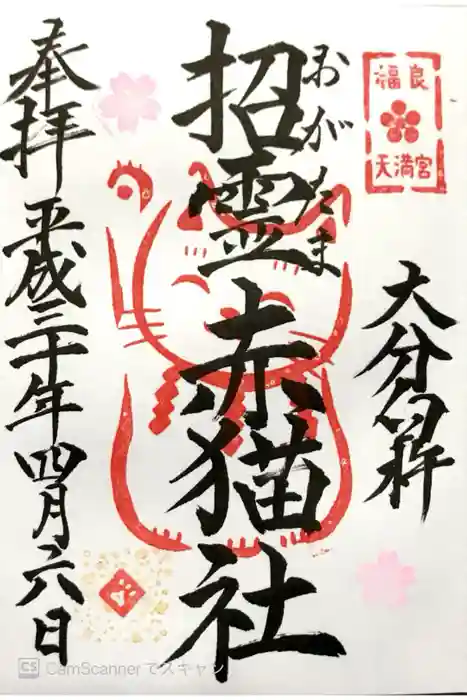 福良
天満宮
大分臼杵
おがたま
招霊赤猫社
奉拝
平成三十年四月六日
CS CamScannerでスキャン